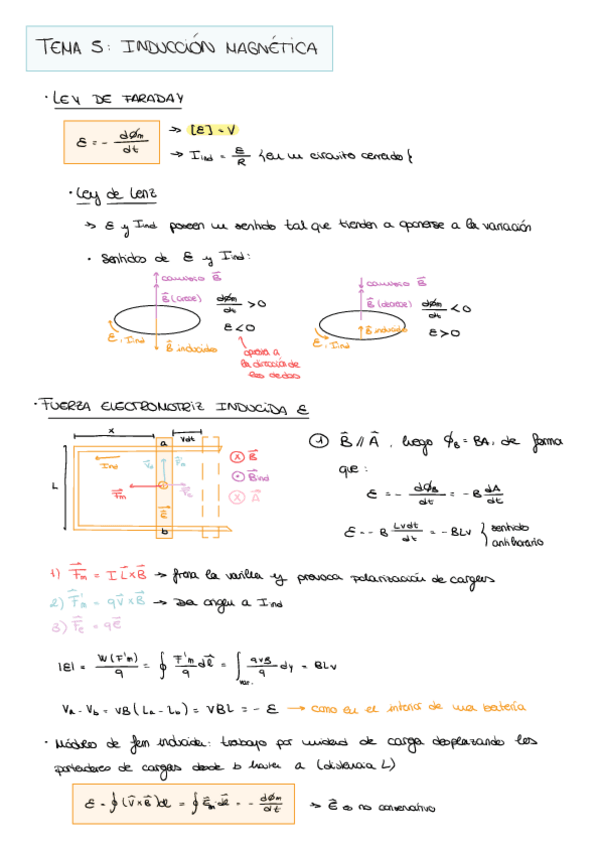 TEMA 5: INDUCCIÓN MAGNÉTICA
· LEY DE FARADAY
ε = - dφm/dt → [ε] = V
→ Iind = ε/R {en un circuito cerrado}
· Ley de Lenz
→ ε y Iind poseen un sentido tal que tienden a oponerse a la variación
· Sentidos de ε y Iind:
cambio B⃗
B⃗ (crece) dφm/dt > 0
ε < 0
ε, Iind
B⃗ inducido
opuesta a la dirección de los dedos
cambio B⃗
B⃗ (decrece) dφm/dt < 0
B⃗ inducido ε > 0
ε, Iind
· FUERZA ELECTROMOTRIZ INDUCIDA ε
x a vdt
Iind
L
F⃗m
b
B⃗
B⃗ind
A⃗
① B⃗ // A⃗, luego φB = BA, de forma
que:
ε = - dφB/dt = -B dA/dt
ε = - B Lvdt/dt = -BLv } sentido antihorario
1) F⃗m = I L⃗×B⃗ → frena la varilla y provoca polarización de cargas
2) F⃗'m = q v⃗×B⃗ → Da origen a Iind
3) F⃗e = q e⃗
|ε| = W(F'm)/q = ∮ F⃗'m/q dl⃗ = ∫var. qvB/q dy = BLv
Va - Vb = vB(La - Lb) = vBL = - ε → como en el interior de una batería
· Módulo de fem inducida: trabajo por unidad de carga desplazando los
portadores de cargas desde b hasta a (distancia L)
ε = ∮(v⃗×B⃗)dl⃗ = ∮E⃗m dl⃗ = - dφm/dt → E⃗ es no conservativo